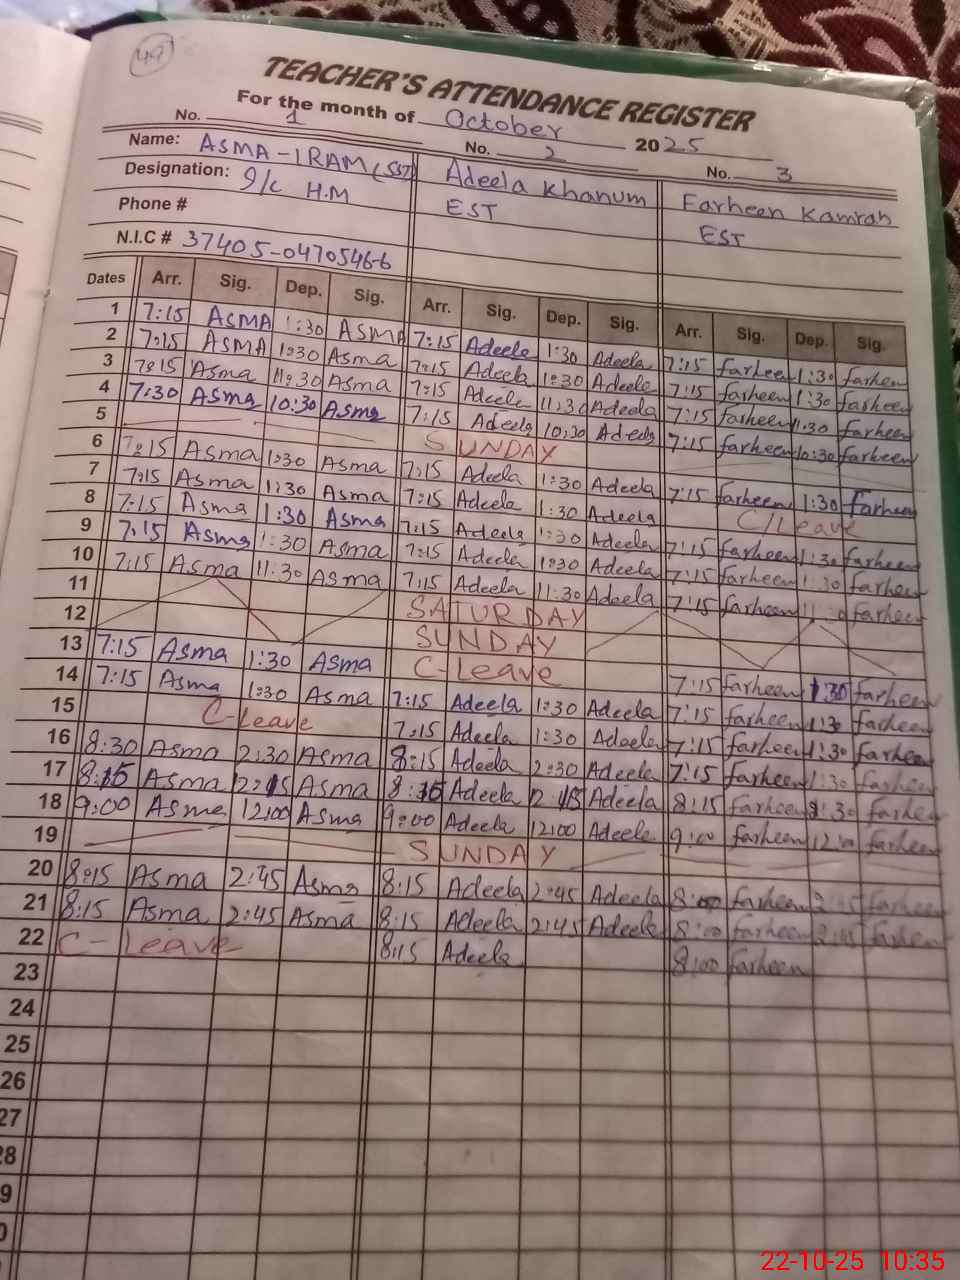 49
TEACHER'S ATTENDANCE REGISTER
For the month of October 2025
No. 1 No. 2 No. 3
Name: ASMA-IRAM (SST) Adeela Khanum Farheen Kamran
Designation: I/C H.M EST EST
Phone #
N.I.C # 37405-0470546-6
Dates Arr. Sig. Dep. Sig. Arr. Sig. Dep. Sig. Arr. Sig. Dep. Sig.
1 7:15 ASMA 1:30 ASMA 7:15 Adeela 1:30 Adeela 7:15 farheen 1:30 farheen
2 7:15 ASMA 1:30 Asma 7:15 Adeela 1:30 Adeela 7:15 farheen 1:30 farheen
3 7:15 Asma 11:30 Asma 7:15 Adeela 11:30 Adeela 7:15 farheen 11:30 farheen
4 7:30 Asma 10:30 Asma 7:15 Adeela 10:30 Adeela 7:15 farheen 10:30 farheen
5 SUNDAY
6 7:15 Asma 1:30 Asma 7:15 Adeela 1:30 Adeela 7:15 farheen 1:30 farheen
7 7:15 Asma 1:30 Asma 7:15 Adeela 1:30 Adeela C/Leave
8 7:15 Asma 1:30 Asma 7:15 Adeela 1:30 Adeela 7:15 farheen 1:30 farheen
9 7:15 Asma 1:30 Asma 7:15 Adeela 1:30 Adeela 7:15 farheen 1:30 farheen
10 7:15 Asma 11:30 Asma 7:15 Adeela 11:30 Adeela 7:15 farheen farheen
11 SATURDAY
12 SUNDAY
13 7:15 Asma 1:30 Asma C-Leave 7:15 farheen 1:30 farheen
14 7:15 Asma 1:30 Asma 7:15 Adeela 1:30 Adeela 7:15 farheen 1:30 farheen
15 C-Leave 7:15 Adeela 1:30 Adeela 7:15 farheen 1:30 farheen
16 8:30 Asma 2:30 Asma 8:15 Adeela 2:30 Adeela 7:15 farheen 1:30 farheen
17 8:15 Asma 2:15 Asma 8:15 Adeela 2:15 Adeela 8:15 farheen farheen
18 9:00 Asma 12:00 Asma 9:00 Adeela 12:00 Adeela 9:00 farheen 12:00 farheen
19 SUNDAY
20 8:15 Asma 2:45 Asma 8:15 Adeela 2:45 Adeela 8:00 farheen 2:45 farheen
21 8:15 Asma 2:45 Asma 8:15 Adeela 2:45 Adeela 8:00 farheen 2:45 farheen
22 C-Leave 8:15 Adeela 8:00 farheen
23
24
25
26
27
28
9
0
22-10-25 10:35